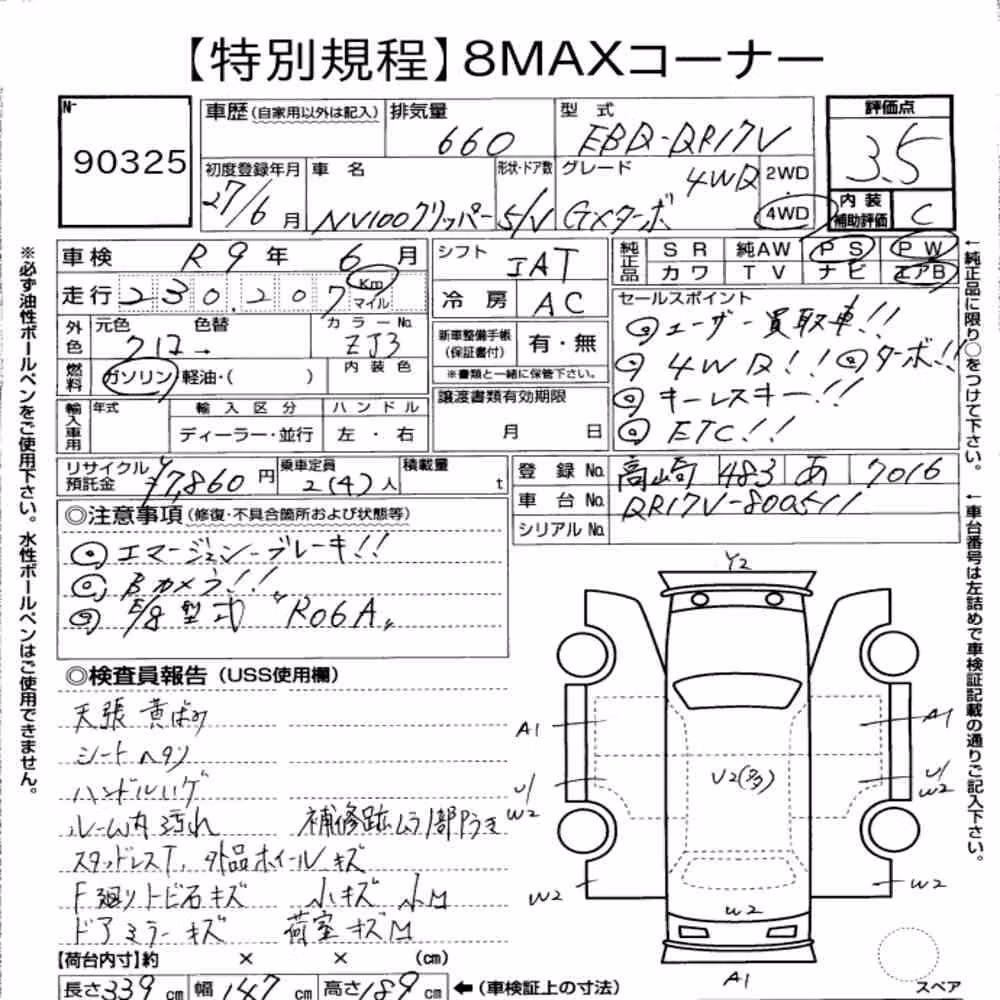 【特別規程】8MAXコーナー
No.
90325
車歴(自家用以外は記入)
排気量
660
型 式
EBD-DR17V
評価点
3.5
内装補助評価
C
初度登録年月
27/6月
車 名
NV100クリッパー
形状・ドア数
5/V
グレード
GXターボ
4WD
2WD
・
4WD
車検 R9年 6月
走行 230,207 Km マイル
シフト IAT
冷房 AC
純正品
SR 純AW PS PW
カワ TV ナビ エアB
外色
元色 色替
クロ→
カラーNo.
ZJ3
燃料
ガソリン・軽油・( )
内装色
新車整備手帳(保証書付)
有・無
※書類と一緒に保管下さい。
輸入車用
年式
輸入区分
ディーラー・並行
ハンドル
左・右
譲渡書類有効期限
月 日
セールスポイント
◎ユーザー買取車!!
◎4WD!! ◎ターボ!!
◎キーレスキー!!
◎ETC!!
リサイクル預託金 ¥7,860円
乗車定員 2(4)人
積載量 t
登録No. 高崎 483 あ 7016
車台No. DR17V-800511
シリアルNo.
◎注意事項(修復・不具合箇所および状態等)
◎エマージェンシーブレーキ!!
◎Bカメラ!!
◎E/g型式 "R06A"
◎検査員報告(USS使用欄)
天張 黄ばみ
シートヘタリ
ハンドルハゲ
ルーム内汚れ 補修跡ムラ1部アうき
スタッドレスT, 外品ホイールキズ
F廻りトビ石キズ 小キズ 小M
ドアミラーキズ 荷室キズM
【荷台内寸】約 × × (cm)
長さ339cm 幅147cm 高さ189cm
←(車検証上の寸法)
Y2
A1
A1
U2
U/W2
U/W2
W2
W2
W2
A1
スペア
※必ず油性ボールペンをご使用下さい。水性ボールペンはご使用できません。
←純正品に限り○をつけて下さい。
←車台番号は左詰めで車検証記載の通りご記入下さい。